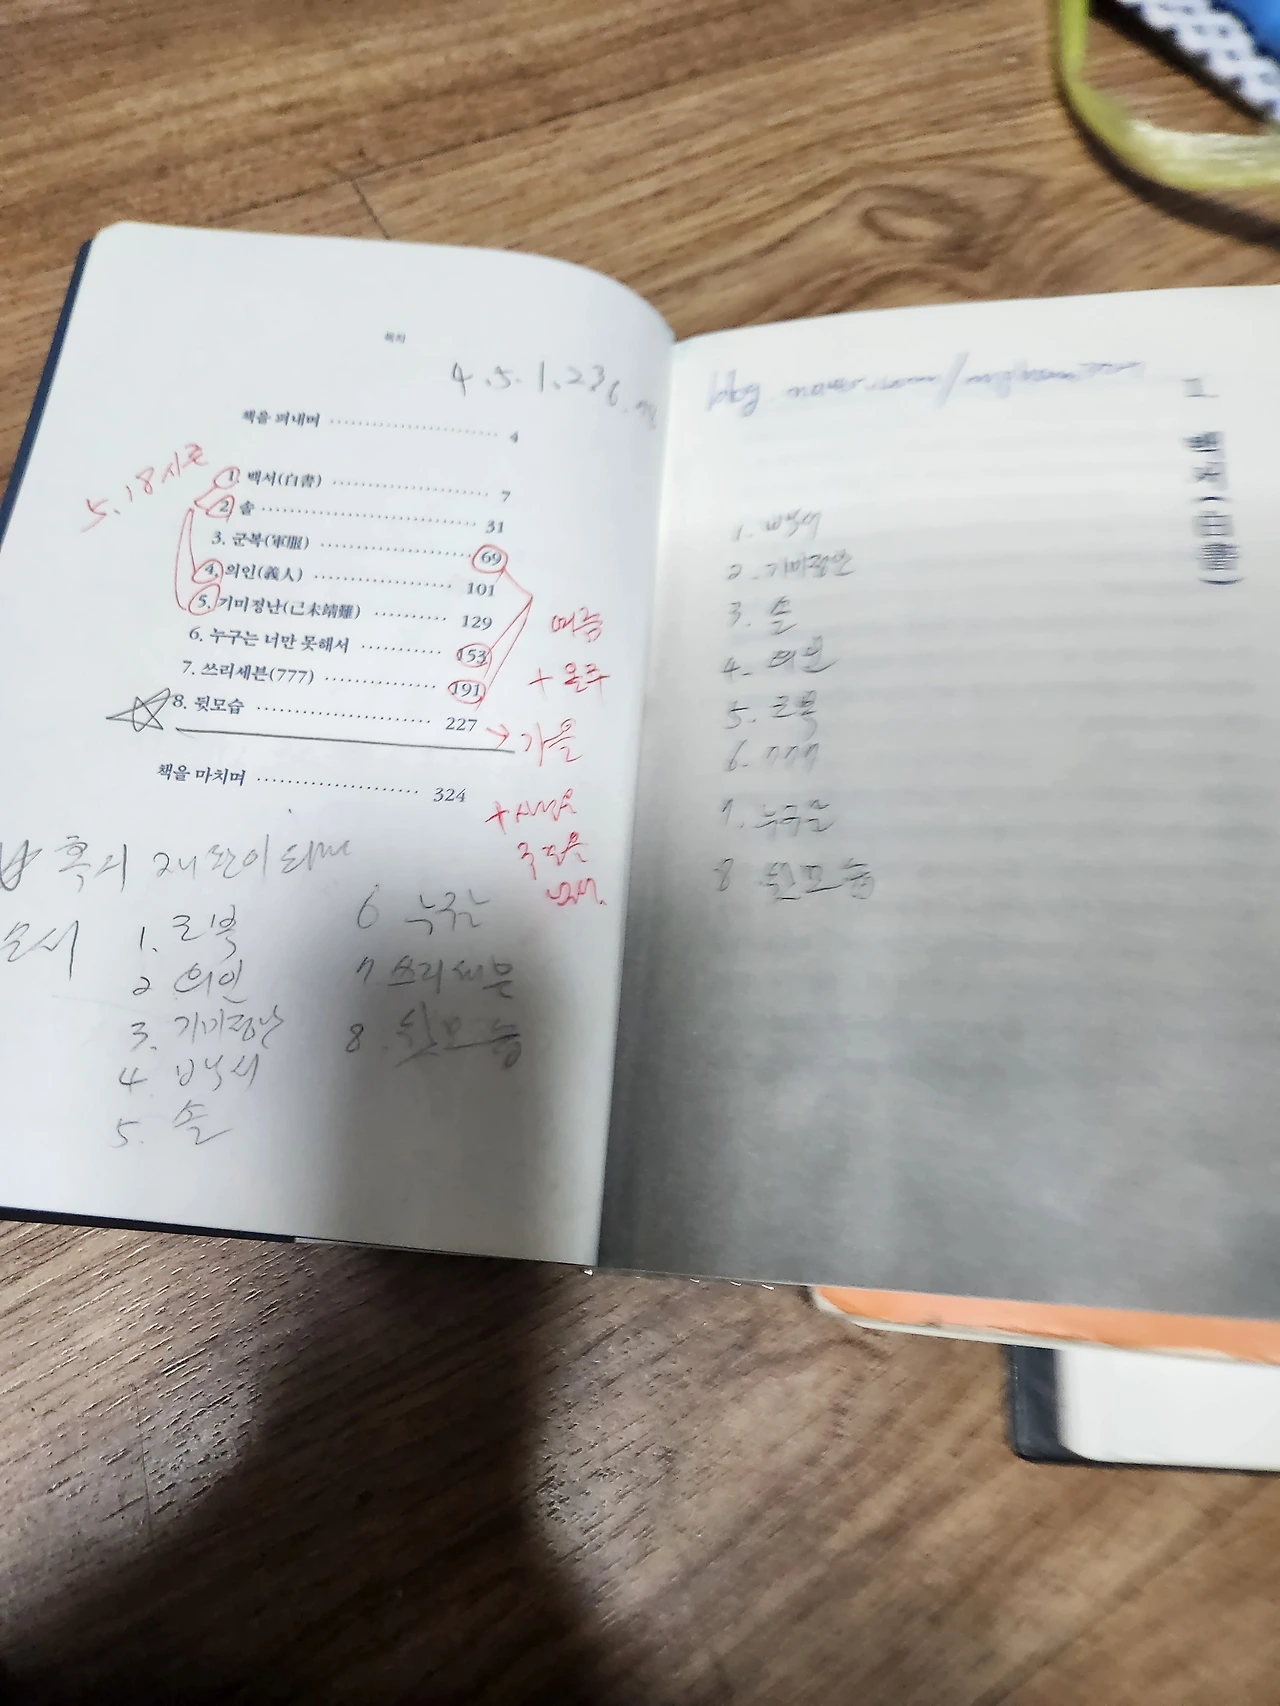 목차
4.5.1.2.3 6.
책을 펴내며 4
5.18
1. 백서(白書) 7
2. 솔 31
3. 군복(軍服) 69
4. 의인(義人) 101
5. 기미정난(己未靖難) 129
6. 누구는 너만 못해서 153
7. 쓰리세븐(777) 191
8. 뒷모습 227
+
→ 가을
책을 마치며 324
혹시 재판이 되면
순서
1. 군복
2 의인
3. 기미정난
4 백서
5. 솔
6 누구는
7 쓰리세븐
8. 뒷모습
blog.naver.com/
1
백서(白書)
1. 백서
2. 기미정난
3. 솔
4. 의인
5. 군복
6. 777
7. 누구는
8 뒷모습